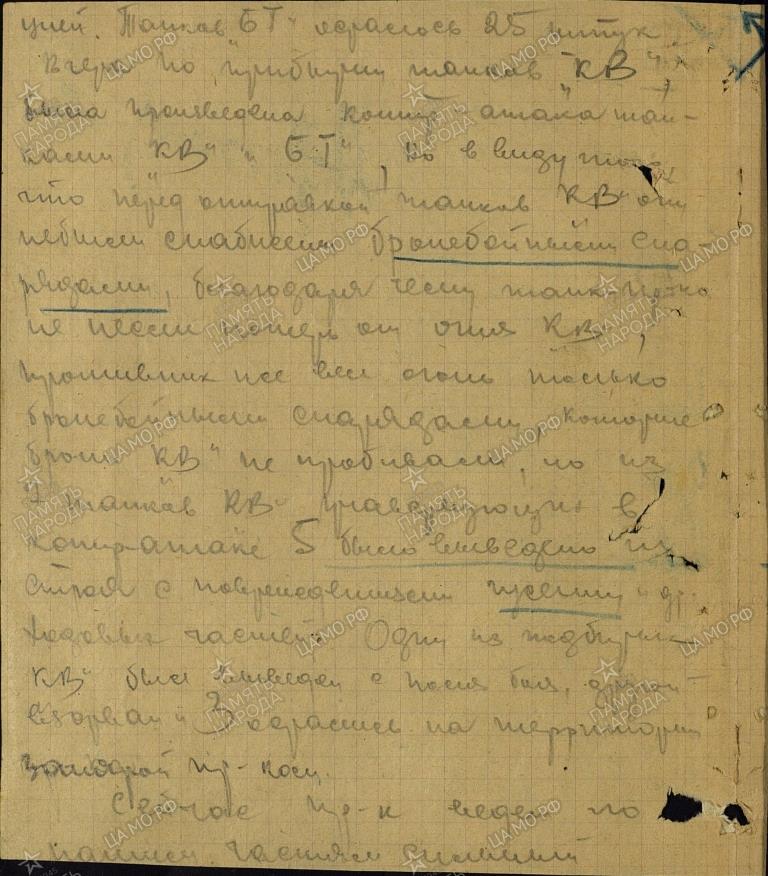 цией. Танков "БТ" осталось 25 штук
Вчера по прибытии танков "КВ",
была произведена контр атака тан-
ками "КВ" и "БТ", но в виду того
что перед отправкой танков "КВ" они
небыли снабжены бронебойными сна-
рядами, благодаря чему танки пр-ка
не несли потерь от огня "КВ",
противник же вел огонь только
бронебойными снарядами, которые
броню "КВ" не пробивали, но из
7 танков "КВ" участвующих в
контр-атаке 5 было выведено из
строя с повреждениями пушки и др.
ходовых частей. Один из подбитых
"КВ" был выведен с поля боя, другой
взорван и 3 остались на территории
занятой пр-ком.
Сейчас пр-к ведет по
нашим частям сильный